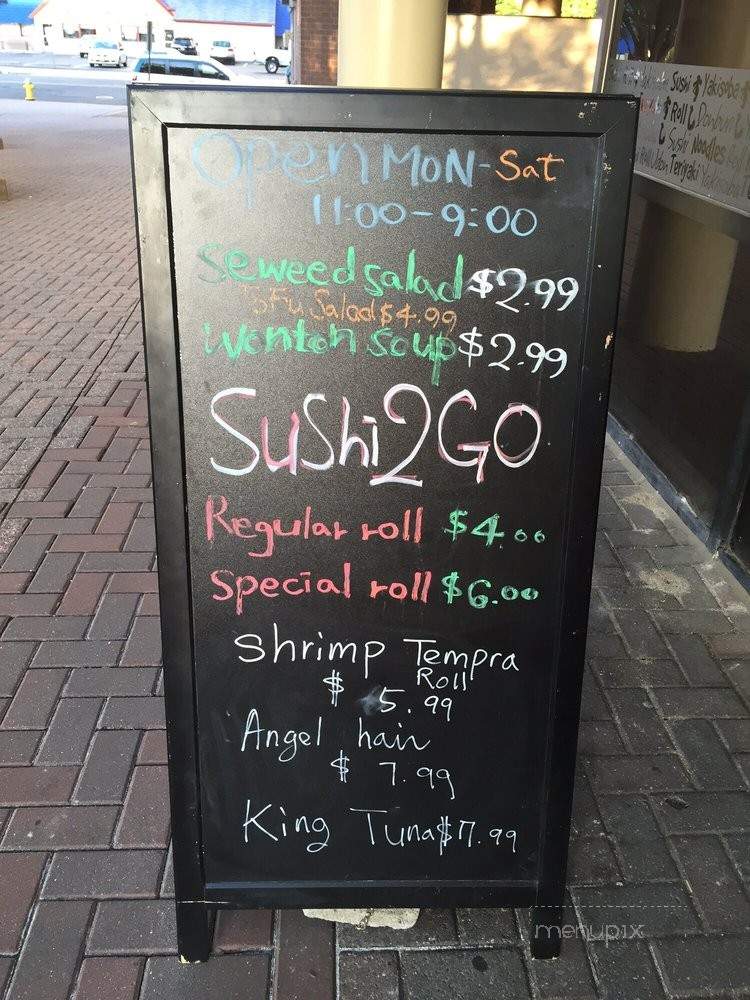 Open MON-Sat
11:00-9:00
Seweed salad $2.99
ToFu Salad $4.99
Wonton soup $2.99
SuShi2GO
Regular roll $4.00
Special roll $6.00
Shrimp Tempra
Roll
$ 5.99
Angel hair
$ 7.99
King Tuna $7.99
Sushi Yakisoba
Roll Donburi
Sushi Noodles
Teriyaki
menupix